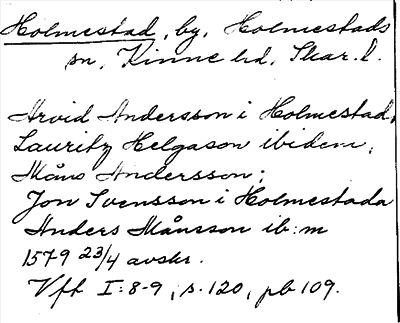 Holmestad, by, Holmestads
sn, Kinne hd, Skar. l.
Arvid Andersson i Holmestad,
Lauritz Helgason ibidem,
Måns Andersson;
Jon Svensson i Holmestada
Anders Månsson ib:m
1579 23/4 avskr.
Vft I:8-9, s. 120, pb 109.